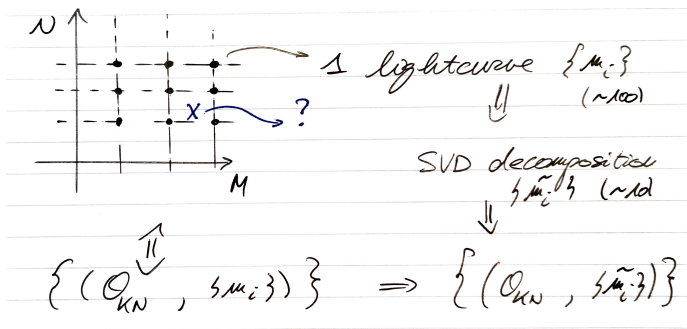 N
1 lightcurve {m_i}
(~100)
x ?
⇓
M
SVD decomposition
{m̃_i} (~10)
⇓
⇕
{(Θ_KN, {m_i})} ⇒ {(Θ_KN, {m̃_i})}